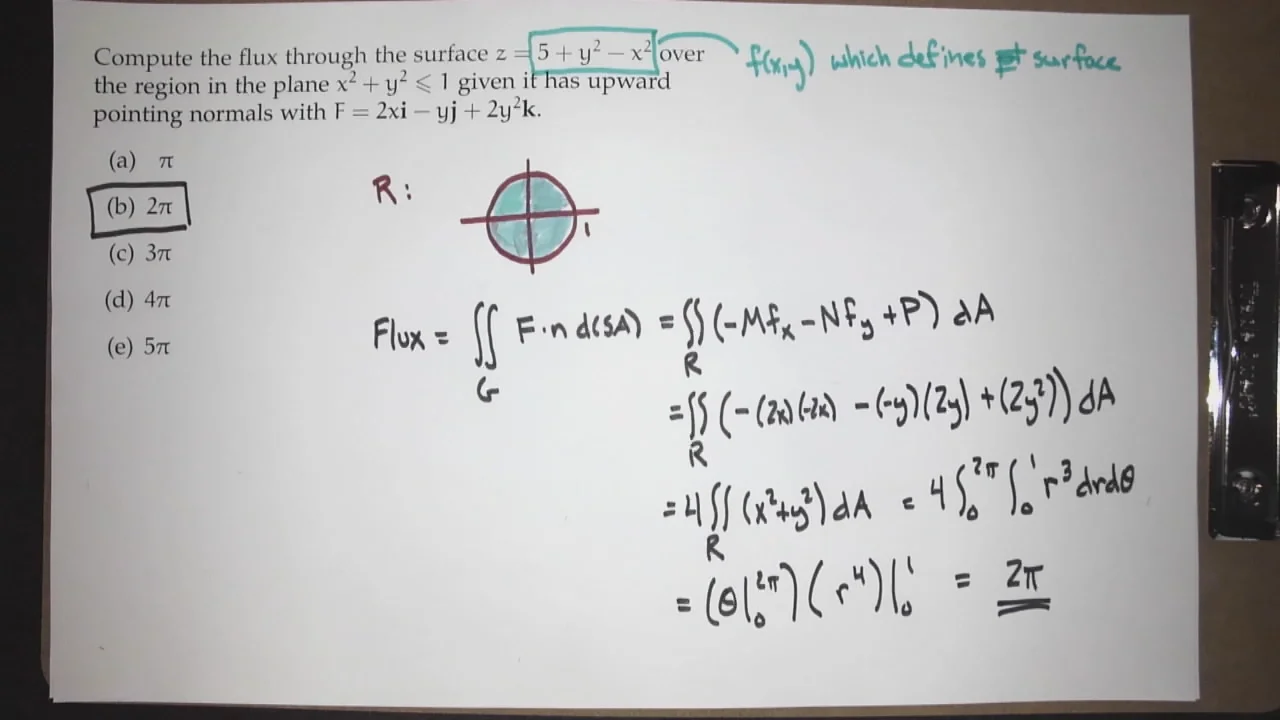 Compute the flux through the surface z = 5 + y² − x² over
the region in the plane x² + y² ⩽ 1 given it has upward
pointing normals with F = 2xi − yj + 2y²k.
f(x,y) which defines surface
(a) π
(b) 2π
(c) 3π
(d) 4π
(e) 5π
R:
1
Flux = ∬_G F·n d(SA) = ∬_R (-Mfₓ - Nf_y + P) dA
= ∬_R (-(2x)(-2x) - (-y)(2y) + (2y²)) dA
= 4∬_R (x²+y²) dA = 4 ∫₀^2π ∫₀¹ r³ dr dθ
= (θ|₀^2π)(r⁴)|₀¹ = 2π